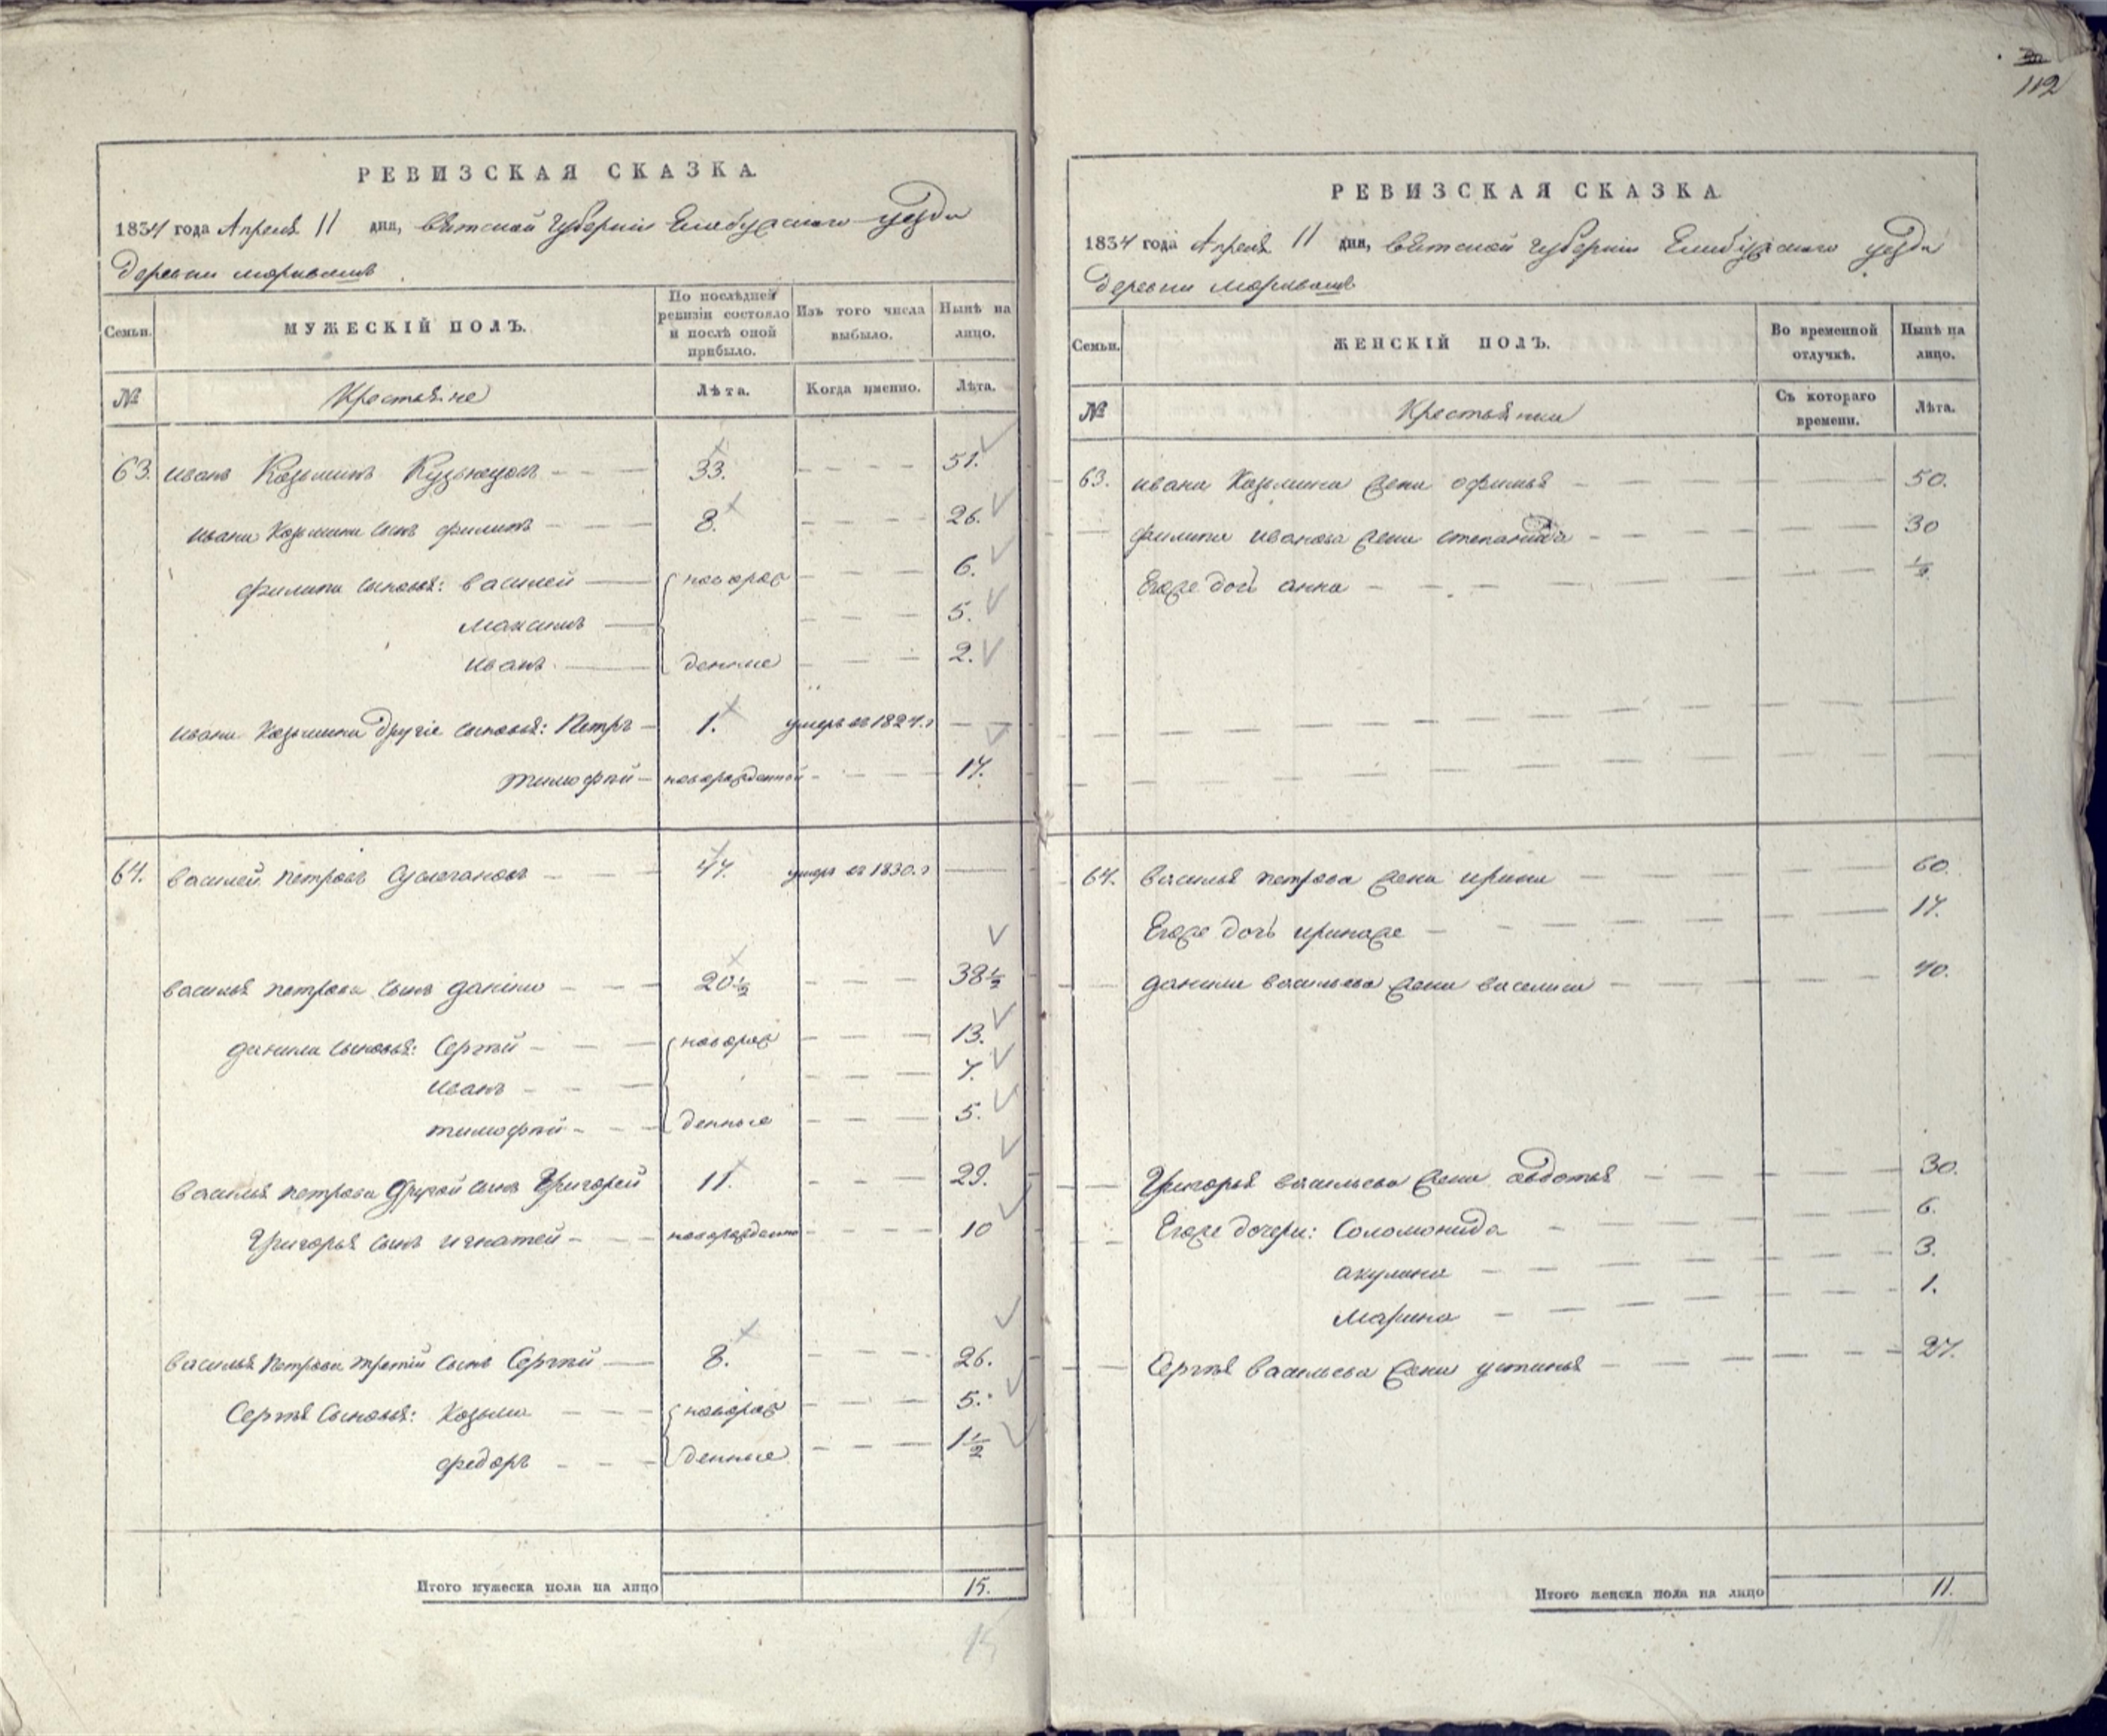 112
РЕВИЗСКАЯ СКАЗКА
1834 года Апреля 11 дня, Вятской Губернии Елабужского уезда
деревни
Семьи. МУЖЕСКІЙ ПОЛЪ. По послѣдней ревизіи состояло и послѣ оной прибыло. Изъ того числа выбыло. Нынѣ на лицо.
№ Крестьяне Лѣта. Когда именно. Лѣта.
63. Иванъ Козьминъ Кузнецовъ 33. 51.
Ивана Козьмина сынъ Филипъ 8. 26.
Филипа сыновья: Василей новорож 6.
Максимъ 5.
Иванъ денные 2.
Ивана Козьмина другіе сыновья: Петръ 1. умеръ въ 1824.г
Тимофей новорожденной 17.
64. Василей Петровъ 47. умеръ въ 1830.г
Василья Петрова сынъ Данило 20½ 38½
Данила сыновья: Сергѣй новорож 13.
Иванъ 7.
Тимофѣй денные 5.
Василья Петрова другой сынъ Григорей 11. 29.
Григорья сынъ Игнатей 10
Василья Петрова третій сынъ Сергѣй 8. 26.
Сергѣя сыновья: Козьма новорож 5.
Федоръ денные 1½
Итого мужеска пола на лицо 15.
15
РЕВИЗСКАЯ СКАЗКА
1834 года Апреля 11 дня, Вятской Губернии Елабужского уезда
деревни
Семьи. ЖЕНСКІЙ ПОЛЪ. Во временной отлучкѣ. Нынѣ на лицо.
№ Крестьянки Съ котораго времени. Лѣта.
63. Ивана Козьмина жена Офимья 50.
Филипа Иванова жена Степанида 30
Егоже дочь Анна ½
64. Василья Петрова жена Ирина 60.
Егоже дочь 17.
Данила Васильева жена Василиса 40.
Григорья Васильева жена Авдотья 30.
Егоже дочери: Соломонида 6.
Акулина 3.
Марина 1.
Сергѣя Васильева жена Устинья 27.
Итого женска пола на лицо 11.